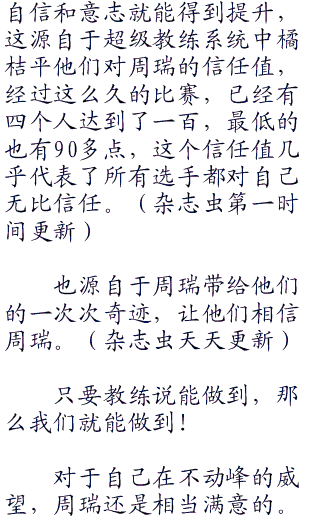 自信和意志就能得到提升，
这源自于超级教练系统中橘
桔平他们对周瑞的信任值，
经过这么久的比赛，已经有
四个人达到了一百，最低的
也有90多点，这个信任值几
乎代表了所有选手都对自己
无比信任。（杂志虫第一时
间更新）
也源自于周瑞带给他们
的一次次奇迹，让他们相信
周瑞。（杂志虫天天更新）
只要教练说能做到，那
么我们就能做到！
对于自己在不动峰的威
望，周瑞还是相当满意的。